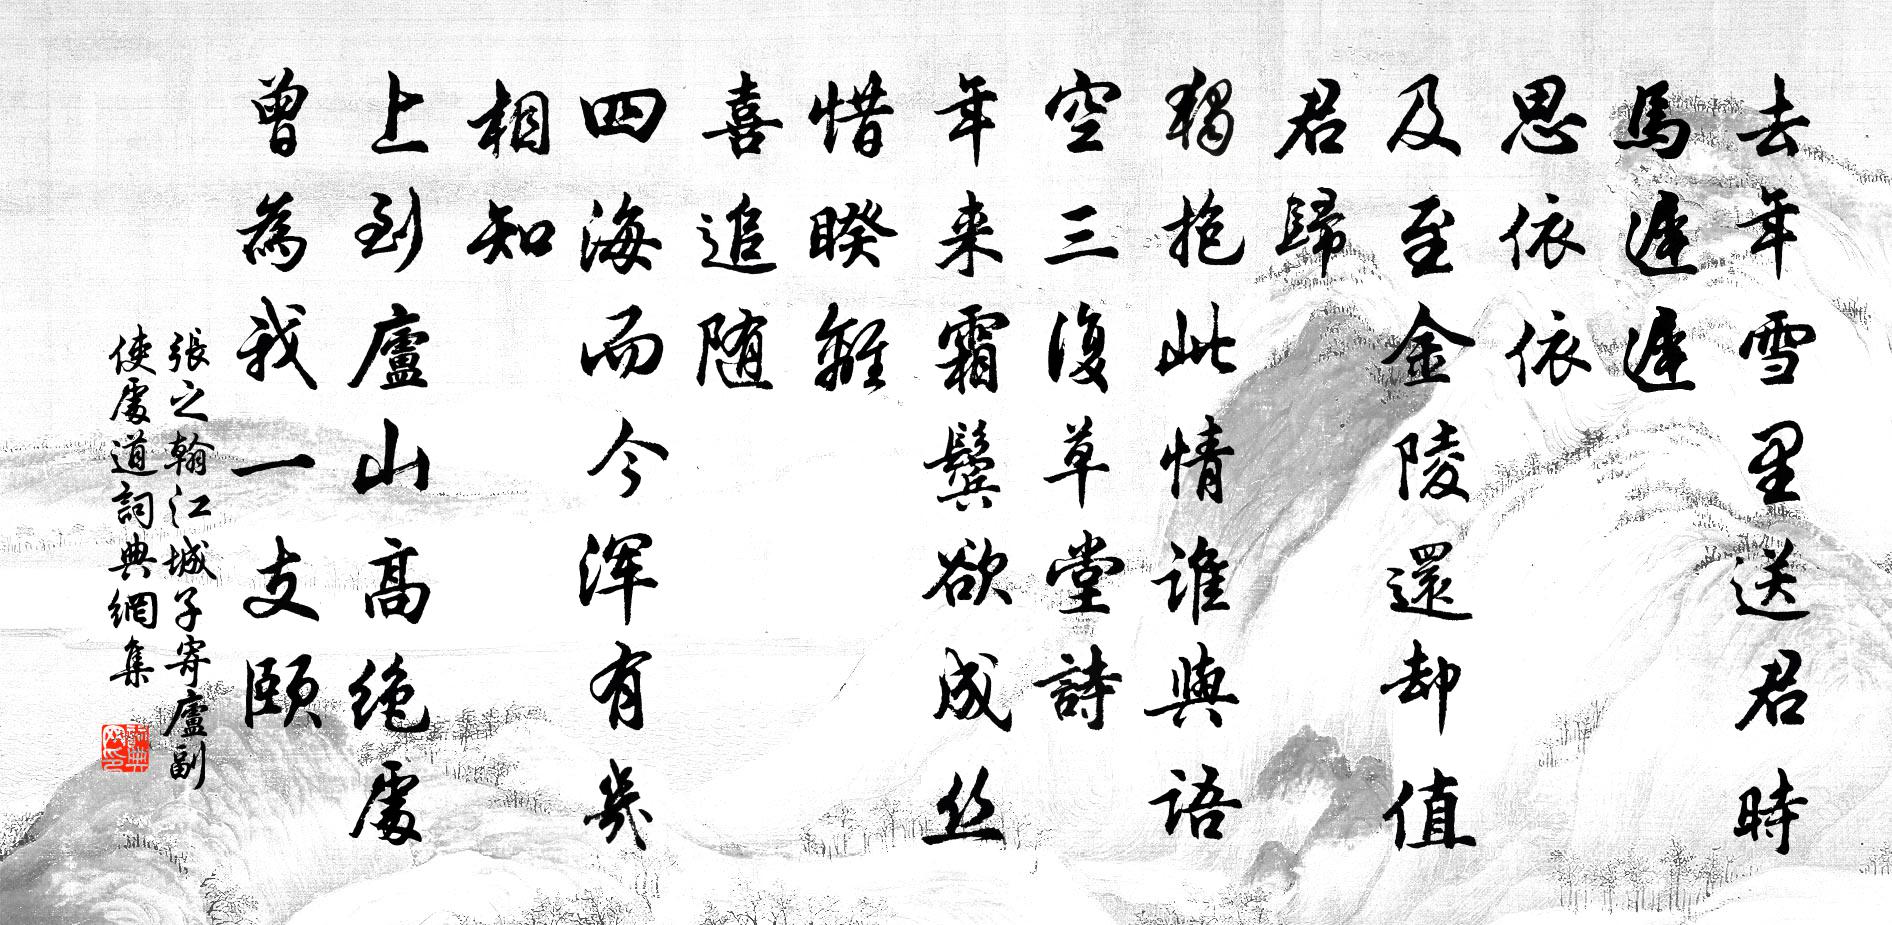 去年雪里送君時
馬遲遲
思依依
及至金陵還却值
君歸
獨抱此情誰與語
空三復草堂詩
年来霜鬓欲成丝
惜暌離
喜追随
四海而今浑有幾
相知
上到廬山高绝處
曾為我一支頤
張之翰江城子寄廬副
使處道詞典網集
詞典网印